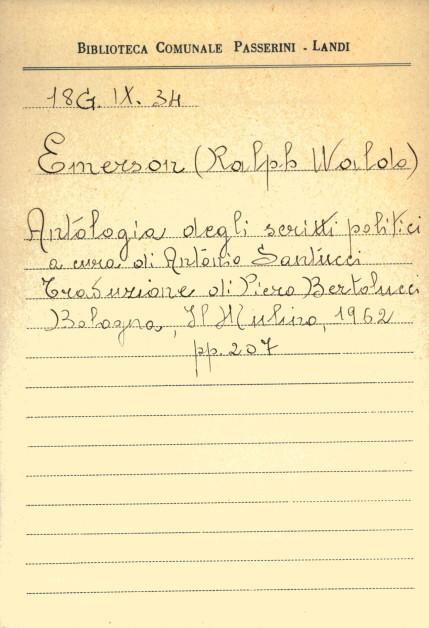 BIBLIOTECA COMUNALE PASSERINI - LANDI
18G. IX. 34
Emerson (Ralph Waldo)
Antologia degli scritti politici
a cura di Antonio Santucci
Traduzione di Piero Bertolucci
Bologna, Il Mulino, 1962
pp. 207